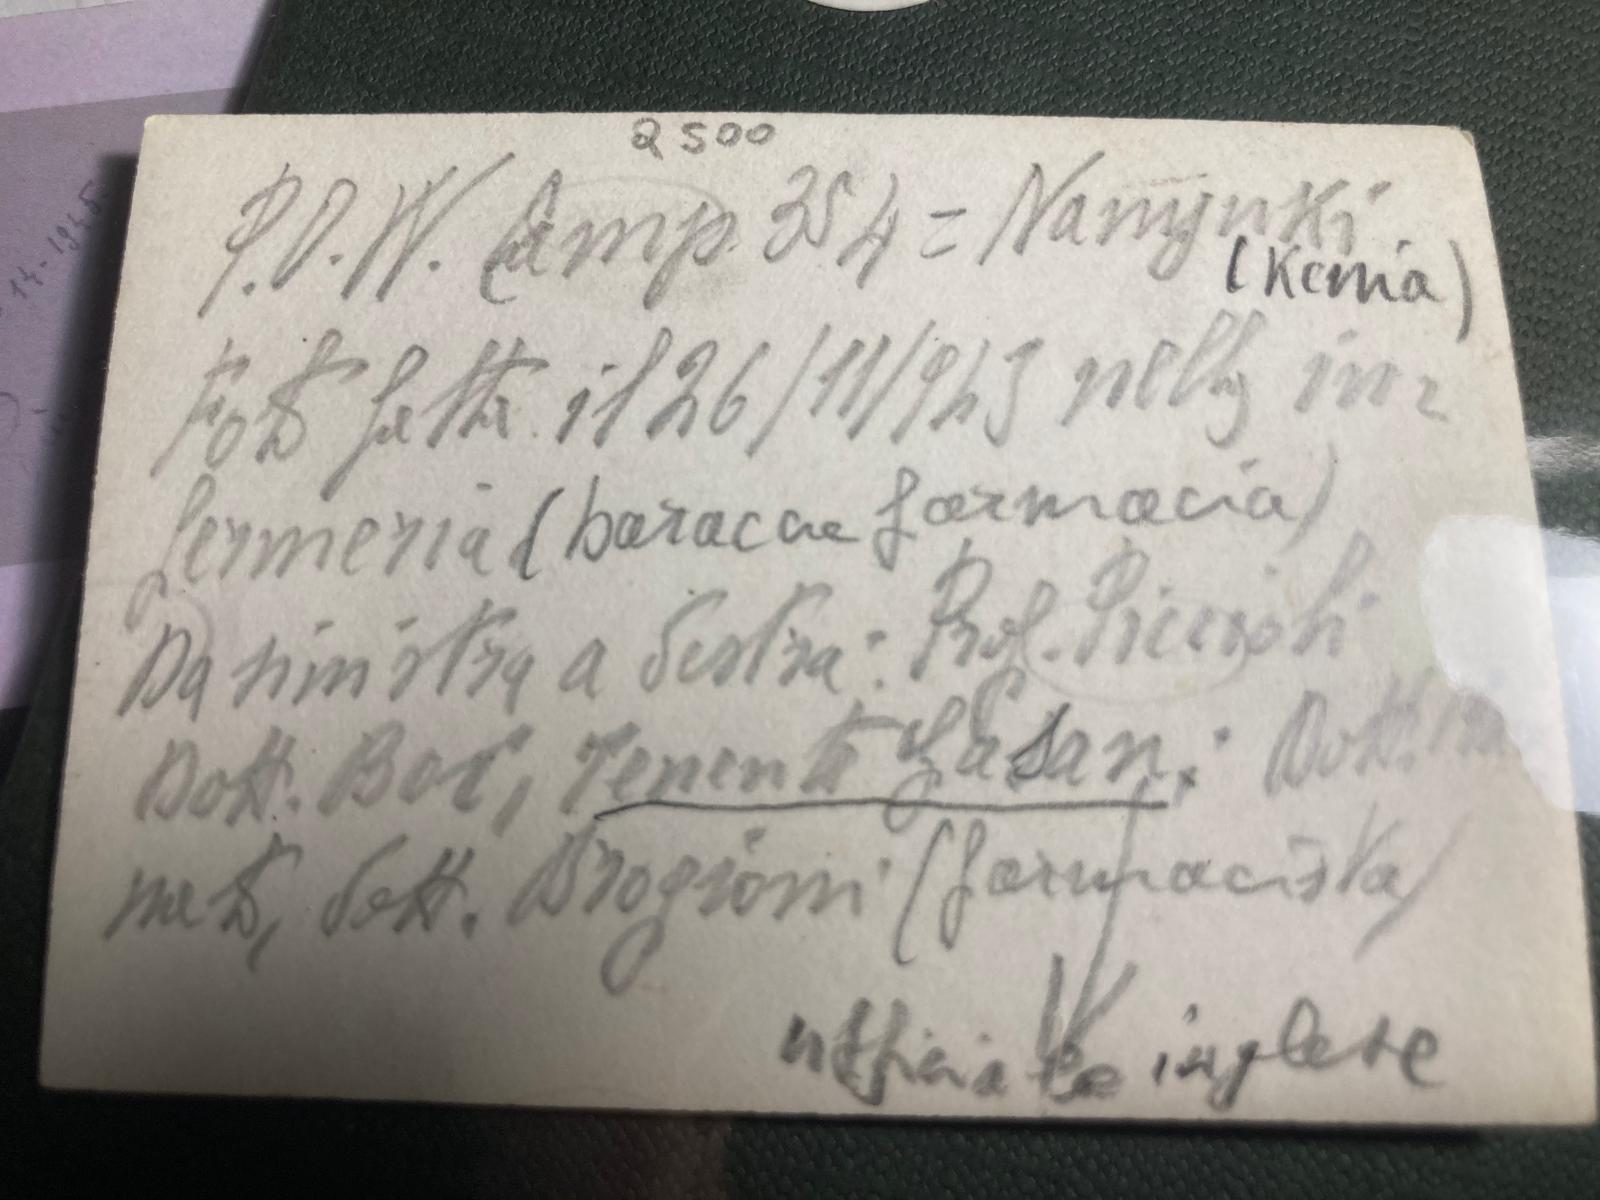 2500
P.O.W. Camp 354 = Namyuki
(Kenia)
Foto fatta il 26/11/943 nella in=
fermeria (baracca farmacia)
Da sinistra a destra: Prof. Piccioli
Dott. Boc, Tenente Hasan: Dott.
dott. Brogioni (farmacista)
ufficiale inglese